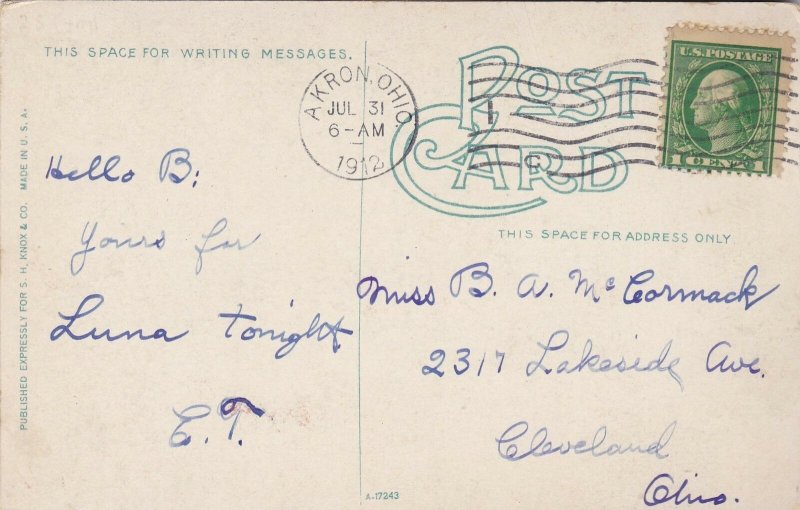 THIS SPACE FOR WRITING MESSAGES.
POST CARD
THIS SPACE FOR ADDRESS ONLY
PUBLISHED EXPRESSLY FOR S. H. KNOX & CO. MADE IN U. S. A.
AKRON, OHIO
JUL 31
6-AM
1912
U.S. POSTAGE
1 CENT 1
Hello B:
Yours for
Luna tonight
E.T.
Miss B. A. McCormack
2317 Lakeside Ave.
Cleveland
Ohio.
A-17243